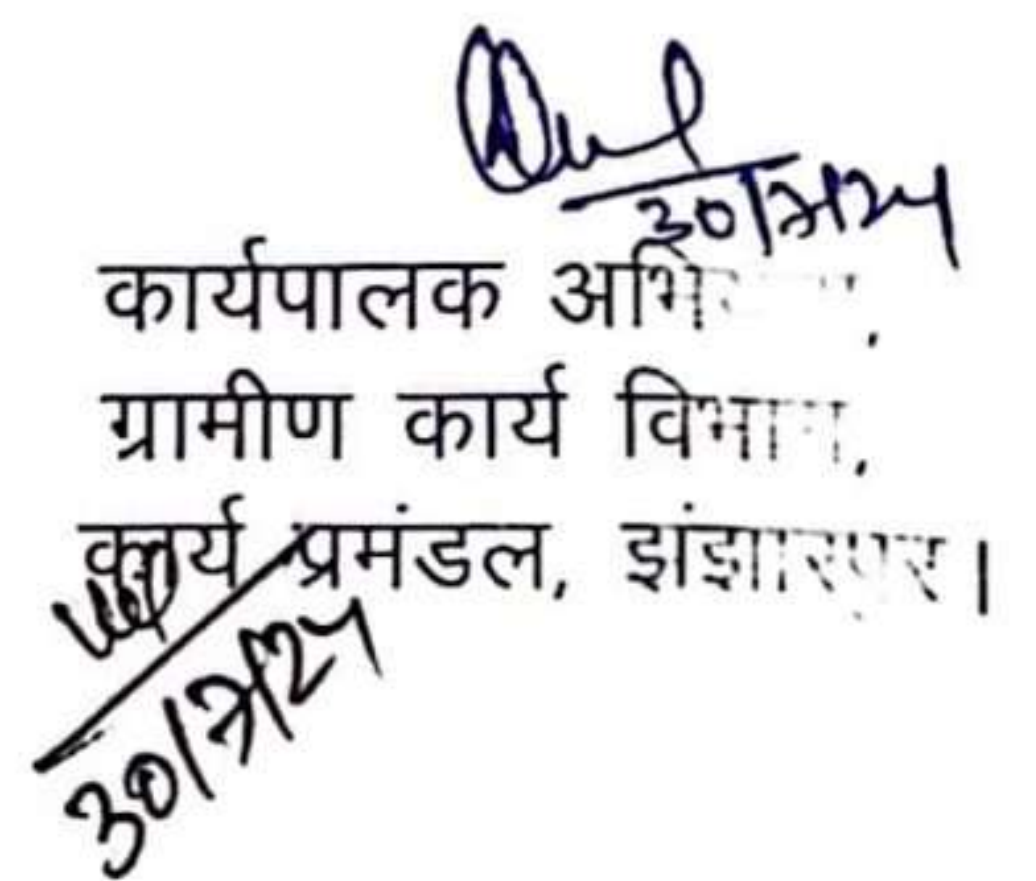 30/7/24
कार्यपालक
ग्रामीण कार्य विभाग,
कार्य प्रमंडल, झंझारपुर।
30/7/24